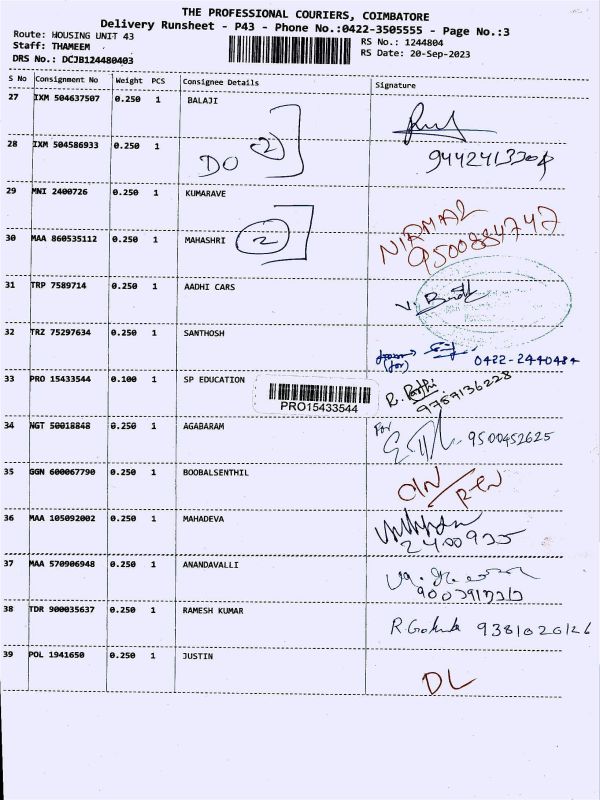 THE PROFESSIONAL COURIERS, COIMBATORE
Delivery Runsheet - P43 - Phone No.:0422-3505555 - Page No.:3
Route: HOUSING UNIT 43
RS No.: 1244804
Staff: THAMEEM
RS Date: 20-Sep-2023
DRS No.: DCJB124480403
S No Consignment No Weight PCS Consignee Details Signature
27 IXM 504637507 0.250 1 BALAJI
28 IXM 504586933 0.250 1
DO 2
29 MNI 2400726 0.250 1 KUMARAVE
30 MAA 860535112 0.250 1 MAHASHRI 2 NIRMAL
9500884747
31 TRP 7589714 0.250 1 AADHI CARS
32 TRZ 75297634 0.250 1 SANTHOSH
(for) 0422-2440484
33 PRO 15433544 0.100 1 SP EDUCATION
PRO15433544
R. 9787136228
34 NGT 50018848 0.250 1 AGABARAM For
9500452625
35 GGN 600067790 0.250 1 BOOBALSENTHIL
36 MAA 105092002 0.250 1 MAHADEVA
2400935
37 MAA 570906948 0.250 1 ANANDAVALLI
38 TDR 900035637 0.250 1 RAMESH KUMAR R. 9381020126
39 POL 1941650 0.250 1 JUSTIN
DL